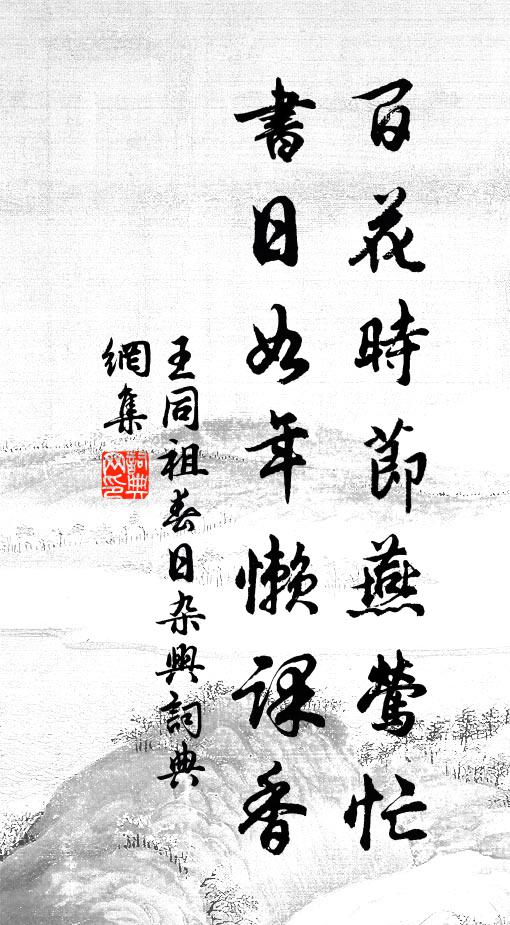 百花時節燕鶯忙
書日如年懶課香
王同祖春日杂興詞典
網集
詞典
网印